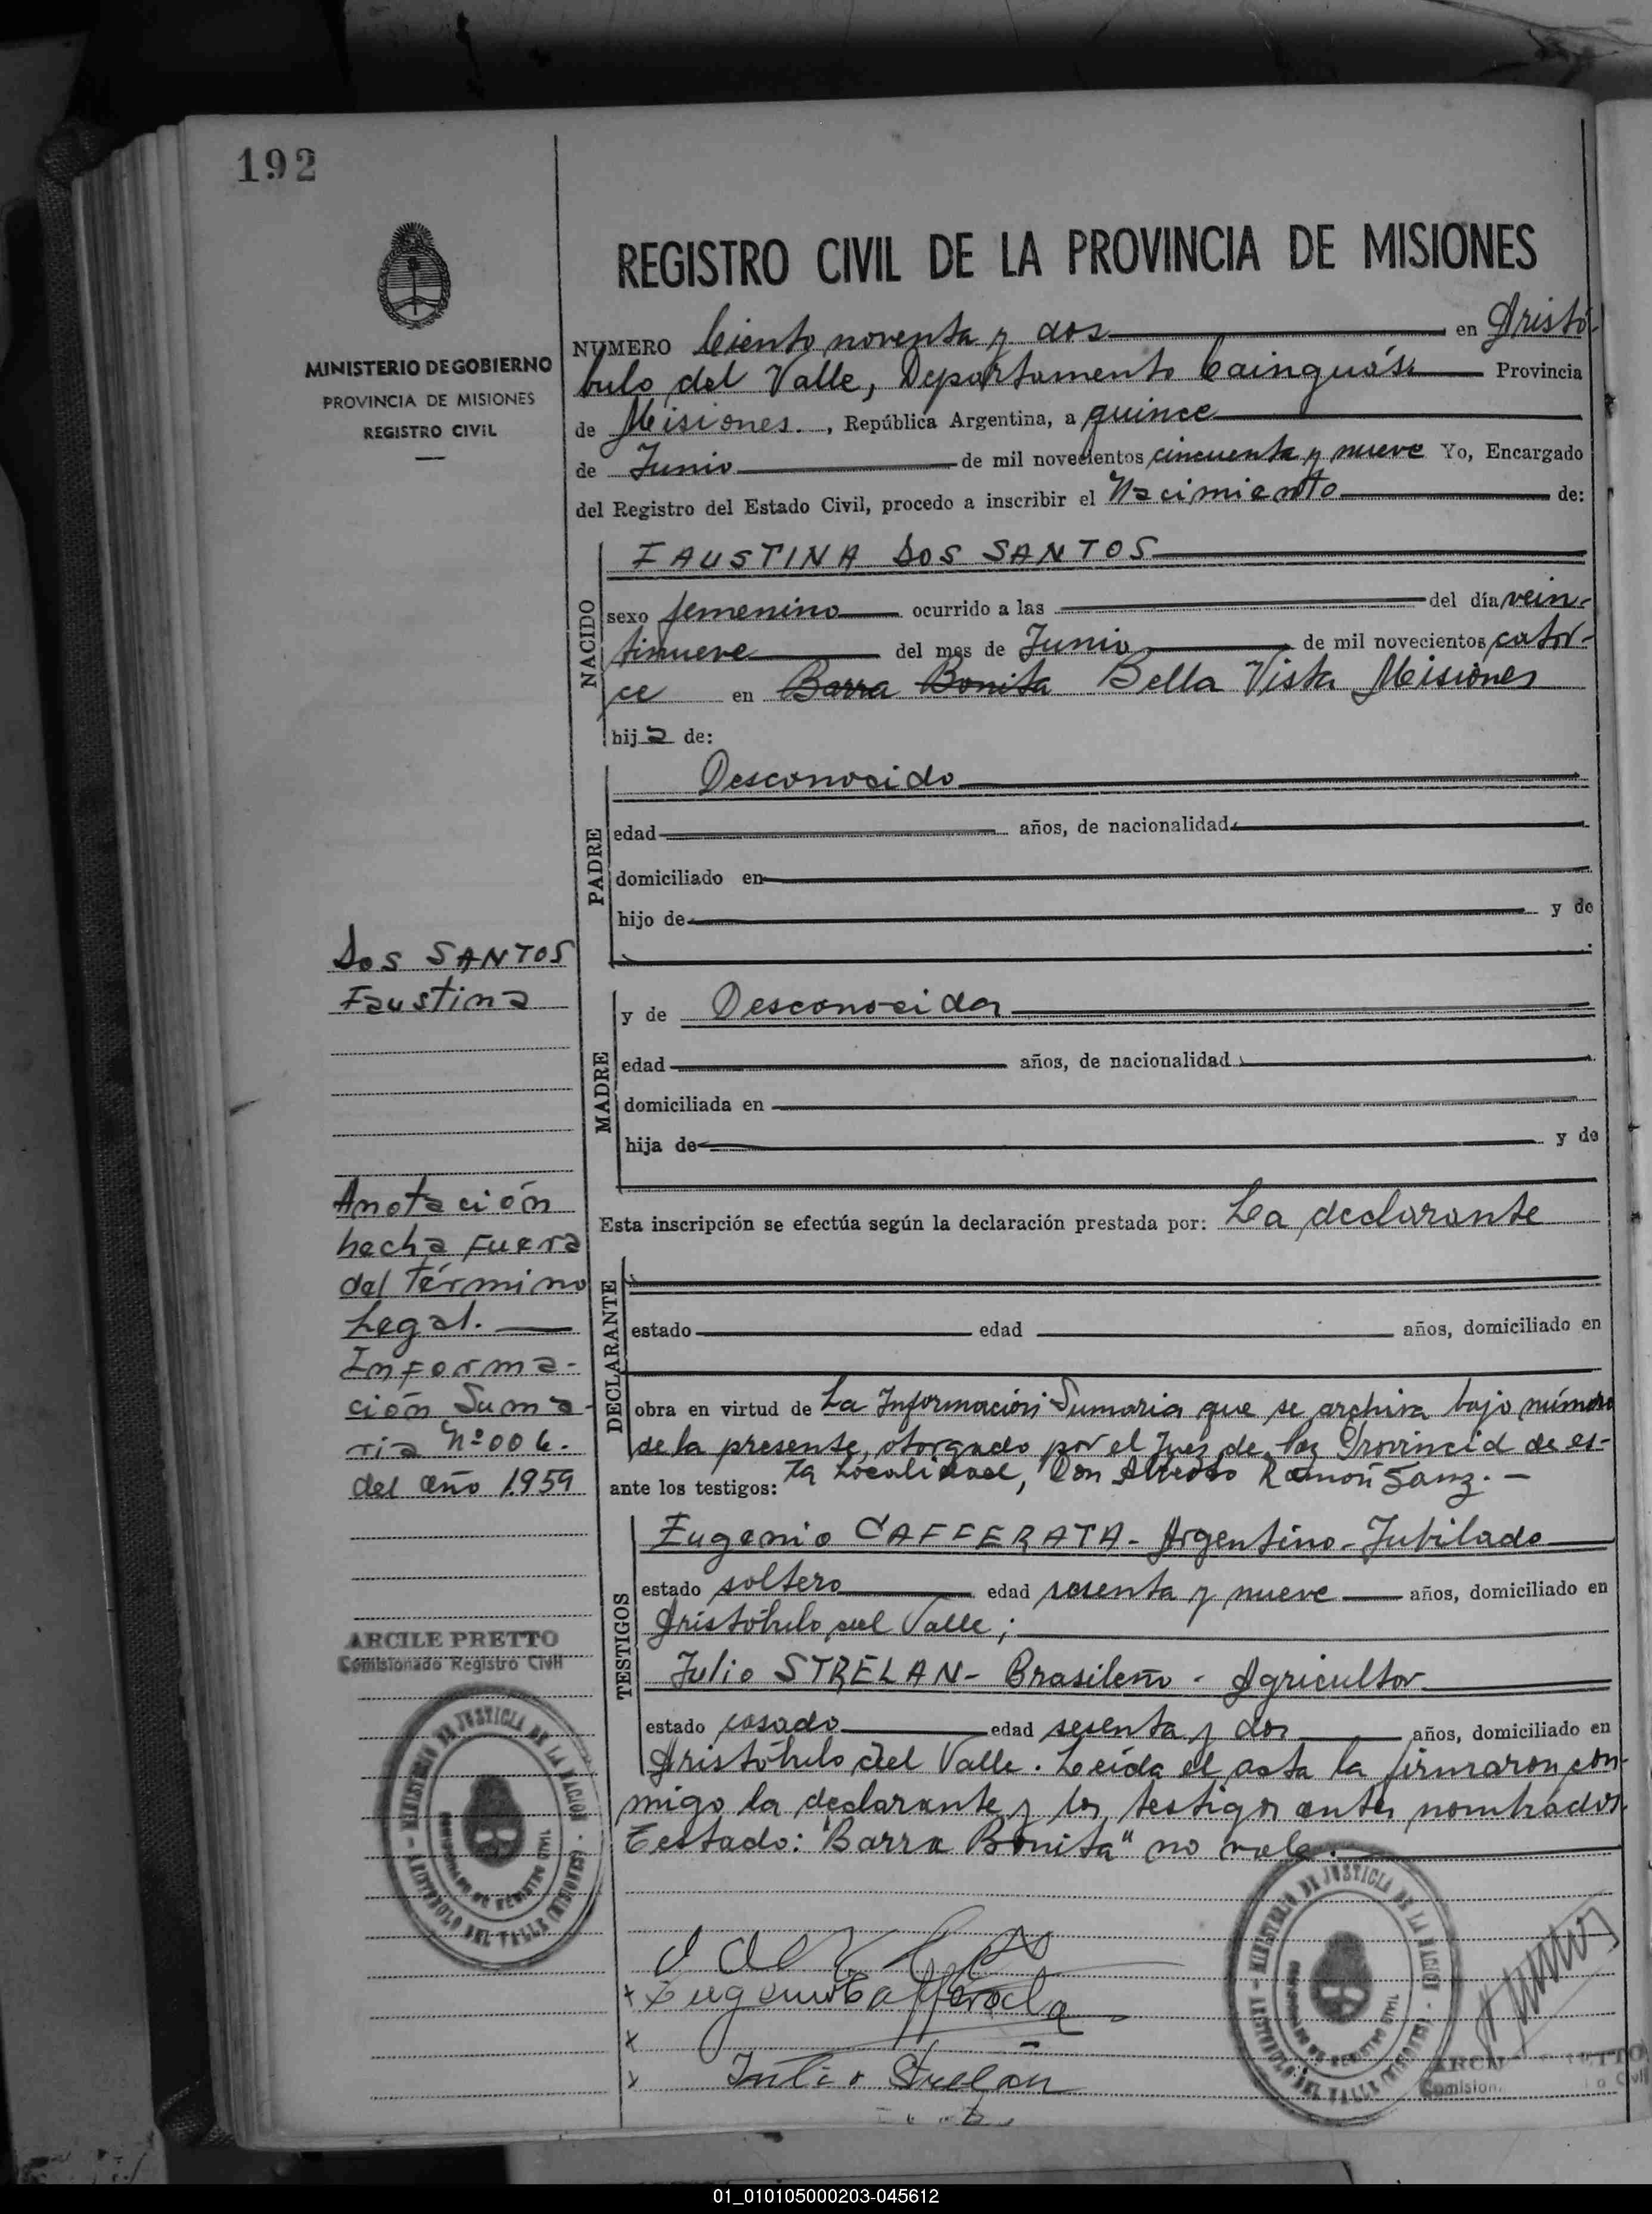 192
MINISTERIO DE GOBIERNO
PROVINCIA DE MISIONES
REGISTRO CIVIL
REGISTRO CIVIL DE LA PROVINCIA DE MISIONES
NUMERO Ciento noventa y dos en Aristó-
bulo del Valle, Departamento Cainguás Provincia
de Misiones. , República Argentina, a quince
de Junio de mil novecientos cincuenta y nueve Yo, Encargado
del Registro del Estado Civil, procedo a inscribir el Nacimiento de:
NACIDO
FAUSTINA DOS SANTOS
sexo femenino ocurrido a las del día vein-
tinueve del mes de Junio de mil novecientos cator-
ce en Barra Bonita Bella Vista Misiones
hija de:
PADRE
Desconocido
edad años, de nacionalidad
domiciliado en
hijo de y de
DOS SANTOS
Faustina
MADRE
y de Desconocida
edad años, de nacionalidad
domiciliada en
hija de y de
Anotación
hecha fuera
del Término
Legal.
Informa-
ción Suma-
ria Nº 006.
del año 1959
Esta inscripción se efectúa según la declaración prestada por: La declarante
DECLARANTE
estado edad años, domiciliado en
obra en virtud de La Información Sumaria que se archiva bajo número
de la presente, otorgado por el Juez de Paz Provincial de es-
ante los testigos: ta Localidad, Don Alfredo Ramón Sanz.-
TESTIGOS
Eugenio CAFFERATA- Argentino- Jubilado
estado soltero edad sesenta y nueve años, domiciliado en
Aristóbulo del Valle;
Julio STRELAN- Brasileño - Agricultor
estado casado edad sesenta y dos años, domiciliado en
Aristóbulo del Valle. Leída el acta la firmaron con-
migo la declarante y los testigos antes nombrados.
Testado: "Barra Bonita" no vale.
ARCILE PRETTO
Comisionado Registro Civil
MINISTERIO DE JUSTICIA DE LA NACION
ARISTOBULO DEL VALLE (MISIONES)
Eugenio Cafferata
Julio Strelan
MINISTERIO DE JUSTICIA DE LA NACION
ARISTOBULO DEL VALLE (MISIONES)
01_010105000203-045612